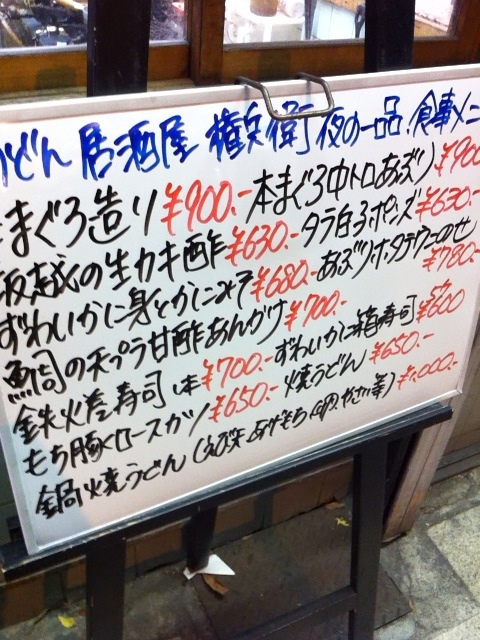 うどん 居酒屋 権兵衛 夜の一品、食事メニ
まぐろ造り ¥900.- 本まぐろ中トロあぶり ¥900
坂越の生カキ酢 ¥630.- タラ白子ポン酢 ¥630.-
ずわいかに身とかにみそ ¥680.- あぶりホタテウニのせ ¥780.-
鯛の天プラ甘酢あんかけ ¥700.-
鉄火巻寿司 1本 ¥700.- ずわいかに箱寿司 ¥600
もち豚ロースカツ ¥650.- 焼うどん ¥650.-
鍋焼うどん (えび天 あげもち 肉 やさい等) ¥1,000.-